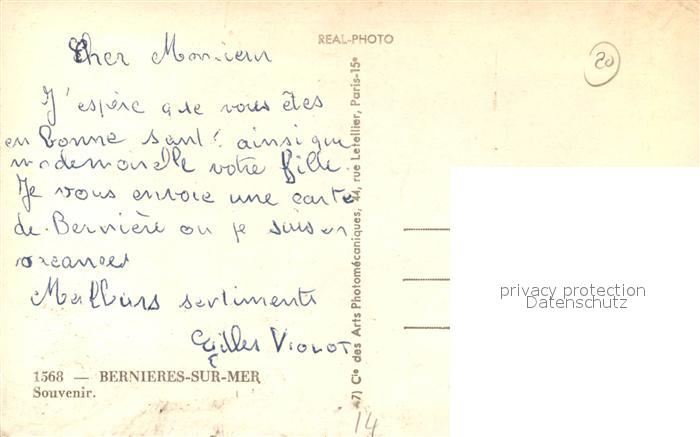 REAL-PHOTO
20
Cher Monsieur
J'espère que vous êtes
en bonne santé ainsi que
mademoiselle votre fille.
Je vous envoie une carte
de Bernière ou je suis en
vacances
Meilleurs sentiments
Gilles
1568 — BERNIERES-SUR-MER
Souvenir.
7) Cie des Arts Photomécaniques, 44, rue Letellier, Paris-15e
14
privacy protection
Datenschutz